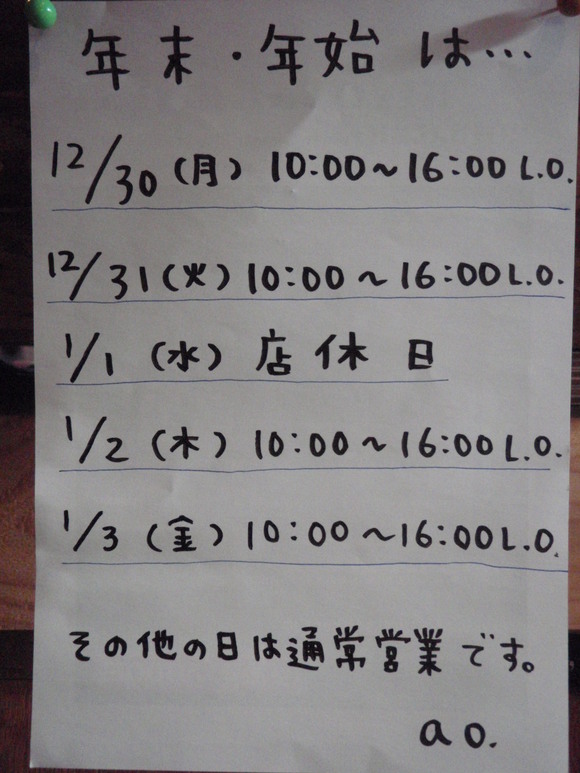 年末・年始は…
12/30(月) 10:00~16:00 L.O.
12/31(火) 10:00~16:00 L.O.
1/1(水) 店休日
1/2(木) 10:00~16:00 L.O.
1/3(金) 10:00~16:00 L.O.
その他の日は通常営業です。
ao.